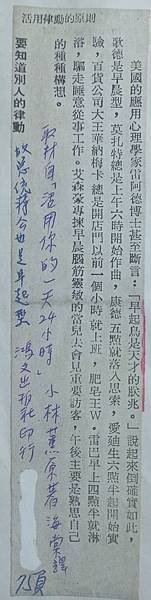 活用律動的原則
美國的應用心理學家雷阿德博士甚至斷言：「早起鳥是天才的朕兆。」說起來倒確實如此，
歌德是早晨型，莫扎特總是上午六時開始作曲，康德五點就落入思索，愛迪生六點半起開始實
驗，百貨公司大王華納梅卡總是開店門以前一個小時就上班，肥皂王W。雷巴早上四點半就淋
浴，驅走睡意從事工作。艾森豪專揀早晨腦筋靈敏的當兒去會見重要訪客，午後主要是熟思自己
的種種構想。
要知道別人的律動
取材自「活用你的一天24小時」小林薰原著 海棠譯
故總統蔣公也是早起型 鴻文出版社印行
75頁